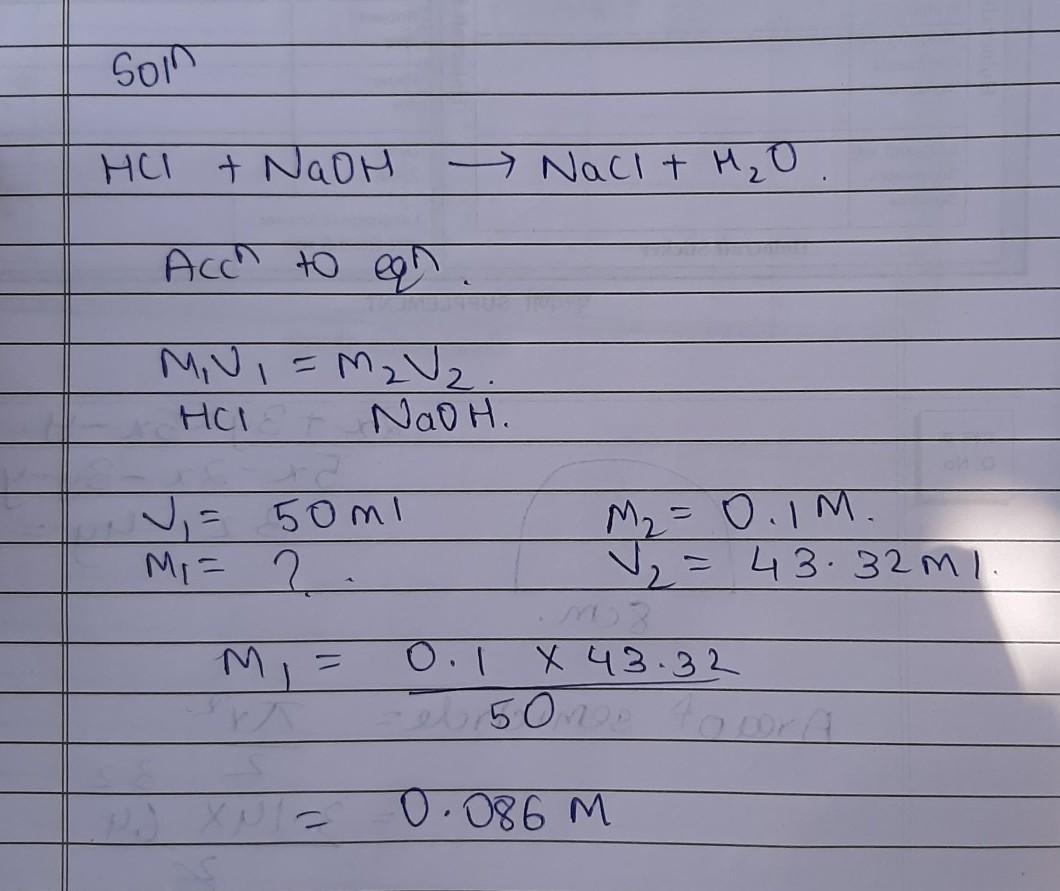 Solⁿ
HCl + NaOH → NaCl + H₂O.
Accⁿ to eqⁿ.
M₁V₁ = M₂V₂.
HCl NaOH.
V₁ = 50ml M₂ = 0.1M.
M₁ = ? . V₂ = 43.32ml.
M₁ = 0.1 x 43.32
50
= 0.086 M